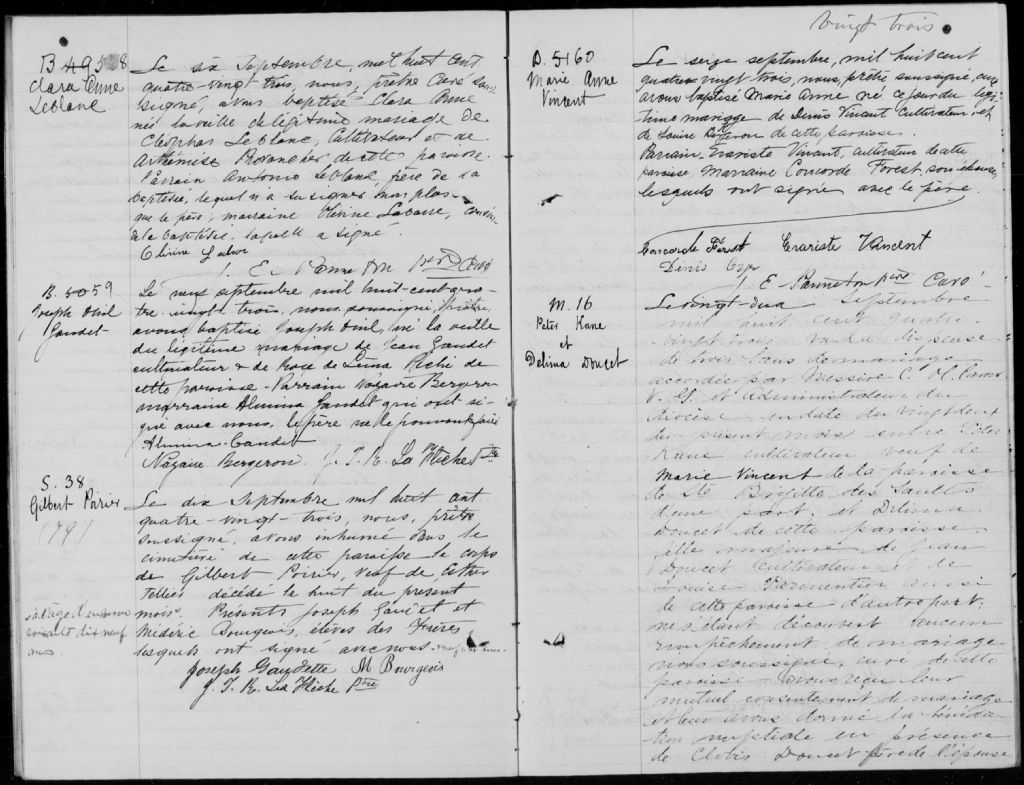 B 49 58
Clara Anne
Leblanc
Le six Septembre, mil huit cent
quatre-vingt trois, nous, prêtre Curé sous
signé, avons baptisé Clara Anne
née la veille du légitime mariage de
Cléophas Leblanc, Cultivateur et de
Arthémise de cette paroisse.
Parrain Antonio Leblanc, frère de la
baptisée, lequel n'a su signer non plus
que le père; marraine Labarre, cousine
de la baptisée, laquelle a signé.
J. E. Panneton Ptre Curé
B. 5059
Joseph Onil
Gaudet
Le neuf septembre mil huit-cent-qua-
tre-vingt trois, nous soussigné, Prêtre,
avons baptisé Joseph Onil, né la veille
du légitime mariage de Jean Gaudet
cultivateur & de de Lima Riché de
cette paroisse. Parrain Nazaire Bergeron
marraine Almina Gaudet qui ont si-
gné avec nous, le père ne le pouvant faire
Almina Gaudet
Nazaire Bergeron. J. T. R. La Flèche Ptre
S. 38
Gilbert Poirier
(79)
Le dix Septembre mil huit cent
quatre-vingt-trois, nous, prêtre
soussigné, avons inhumé dans le
cimetière de cette paroisse le corps
de Gilbert Poirier, veuf de Esther
Tellier décédé le huit du present
mois. Présents Joseph Gaudet et
Médéric Bourgeois, élèves des Frères
lesquels ont signé avec nous.
à l'âge d'environ
soixante dix neuf
ans
Joseph Gaudette M Bourgeois
J. T. R. La Flèche Ptre
Vingt trois
D. 5160
Marie Anne
Vincent
Le seize septembre, mil huit cent
quatre vingt trois, nous, prêtre soussigné, curé
avons baptisé Marie Anne né ce jour du légi
time mariage de Denis Vincent Cultivateur, et
de Louise Bergeron de cette paroisse.
Parrain, Evariste Vincent, cultivateur de cette
paroisse, Marraine Concorde Forest, son épouse,
lesquels ont signé avec le père.
Concorde Forest Evariste Vincent
Dinis
J. E. Panneton Ptre Curé
M. 16
Peter Kane
et
Delima Doucet
Le vingt-deux Septembre
mil huit cent quatre
vingt trois, vu la dispense
de trois bans de mariage
accordée par Messire C. O. Caron
V. G. et Administrateur du
diocèse en date du vingt deux
du présent mois entre Peter
Kane cultivateur veuf de
Marie Vincent de la paroisse
de Ste Brigitte des Saults
d'une part, et Delima
Doucet de cette paroisse,
fille majeure de Jean
Doucet Cultivateur et de
Louise Parmentier aussi
de cette paroisse d'autre part;
ne s'étant découvert aucun
empêchement de mariage
nous soussigné, curé de cette
paroisse avons reçu leur
mutuel consentement de mariage
et leur avons donné la bénédic
tion nuptiale en présence
de Clovis Doucet frère de l'épouse